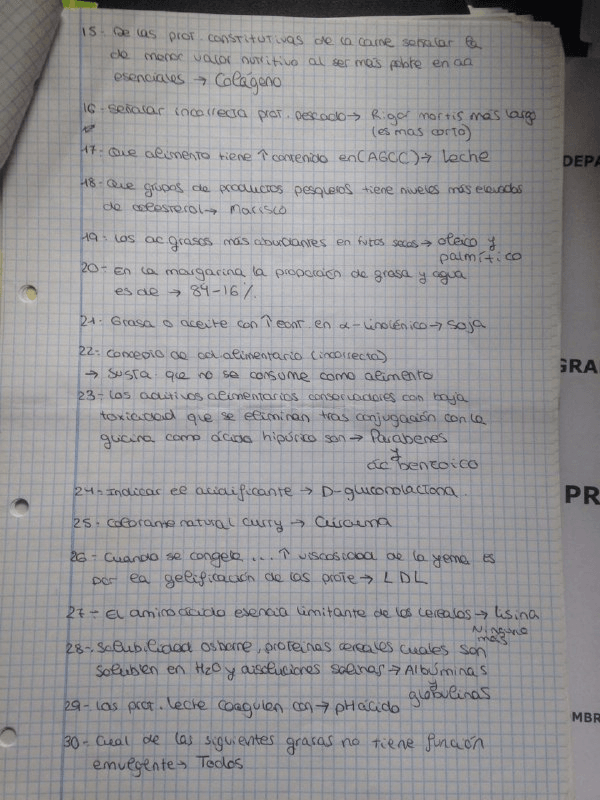 15- De las prot. constitutivas de la carne señalar la
de menor valor nutritivo al ser más pobre en aa
esenciales → Colágeno
16- Señalar incorrecta prot. pescado → Rigor mortis más largo
(es mas corto)
17- Que alimento tiene ↑ contenido en (AGCC) → leche
18- Que grupos de productos pesqueros tiene niveles más elevados
de colesterol → Marisco
19- Los ac grasos más abundantes en frutos secos → oleico y
palmítico
20- En la margarina la proporción de grasa y agua
es de → 84-16 %
21- Grasa o aceite con ↑ cont. en α-linolénico → Soja
22- Concepto de ad. alimentario (incorrecta)
→ Susta que no se consume como alimento
23- Los aditivos alimentarios conservadores con baja
toxicidad que se eliminan tras conjugación con la
glicina como ácido hipúrico son → Parabenes
y
ác benzoico
24- Indicar el acidificante → D-gluconolactona
25- Colorante natural curry → Cúrcuma
26- Cuando se congela ... ↑ viscosidad de la yema es
por la gelificación de las prote → LDL
27- El aminoácido esencia limitante de los cereales → Lisina
Ninguno
más
28- Solubilidad osborne, proteinas cereales cuales son
solublen en H2O y disoluciones salinas → Albúminas
y
globulinas
29- Las prot. leche coagulan con → pH ácido
30- Cual de las siguientes grasas no tiene función
emulgente → Todos
DEPA
GRA
PR
MBR